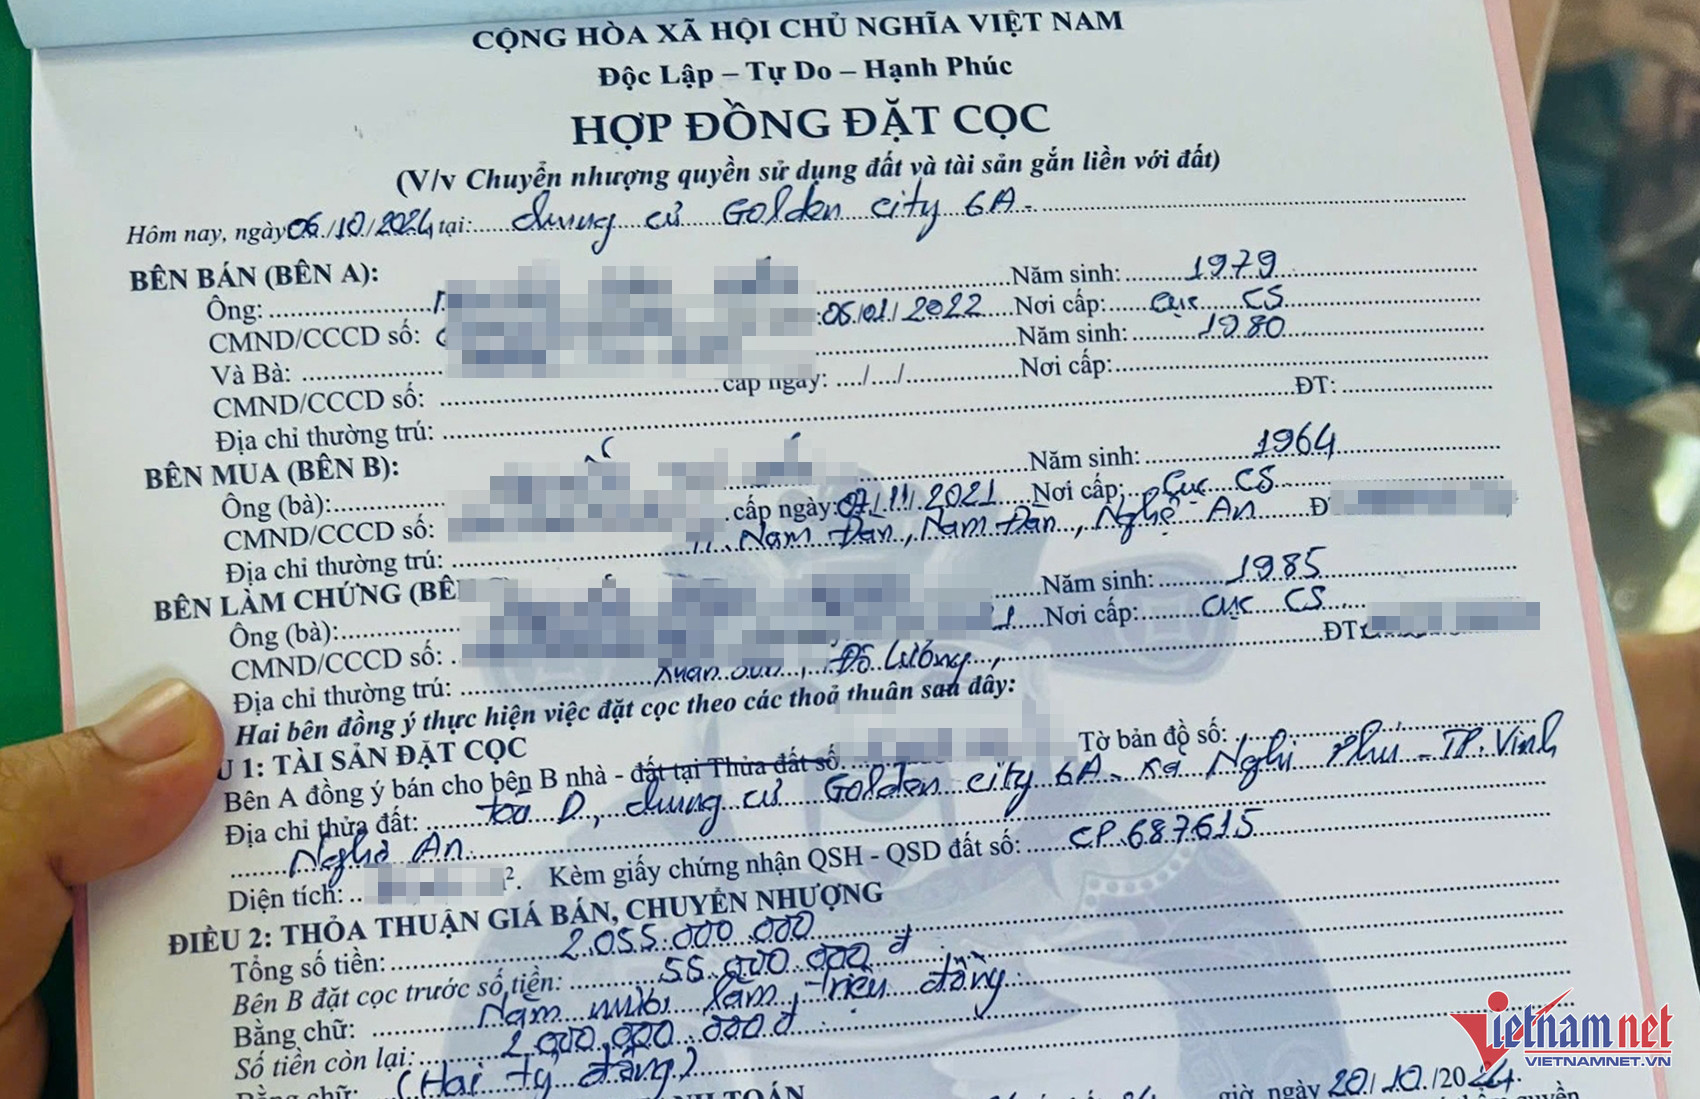 CỘNG HÒA XÃ HỘI CHỦ NGHĨA VIỆT NAM
Độc Lập – Tự Do – Hạnh Phúc
HỢP ĐỒNG ĐẶT CỌC
(V/v Chuyển nhượng quyền sử dụng đất và tài sản gắn liền với đất)
Hôm nay, ngày 06/10/2024 tại: chung cư Golden city 6A
BÊN BÁN (BÊN A):
Ông: Năm sinh: 1979
CMND/CCCD số: 05/01/2022 Nơi cấp: Cục CS
Và Bà: Năm sinh: 1980
CMND/CCCD số: cấp ngày: ..../..../ Nơi cấp:
Địa chỉ thường trú: ĐT:
BÊN MUA (BÊN B):
Ông (bà): Năm sinh: 1964
CMND/CCCD số: cấp ngày: 07/11/2021 Nơi cấp: Cục CS
Địa chỉ thường trú: Nam Đàn, Nam Đàn, Nghệ An
BÊN LÀM CHỨNG (BÊN
Ông (bà): Năm sinh: 1985
CMND/CCCD số: Nơi cấp: Cục CS
Địa chỉ thường trú: Đô Lương, ĐT:
Hai bên đồng ý thực hiện việc đặt cọc theo các thoả thuận sau đây:
1: TÀI SẢN ĐẶT CỌC
Bên A đồng ý bán cho bên B nhà - đất tại Thửa đất số Tờ bản đồ số:
Địa chỉ thửa đất: toà D, chung cư Golden city 6A - xã Nghi Phú - TP. Vinh
Nghệ An
Diện tích: ². Kèm giấy chứng nhận QSH - QSD đất số: CP 687615
ĐIỀU 2: THỎA THUẬN GIÁ BÁN, CHUYỂN NHƯỢNG
Tổng số tiền: 2.055.000.000
Bên B đặt cọc trước số tiền: 55.000.000 đ
Bằng chữ: Năm mươi lăm triệu đồng
Số tiền còn lại: 2.000.000.000đ
Bằng chữ: (Hai tỷ đồng)
TOÁN
giờ, ngày 20/10/2024.
Vietnamnet
VIETNAMNET.VN